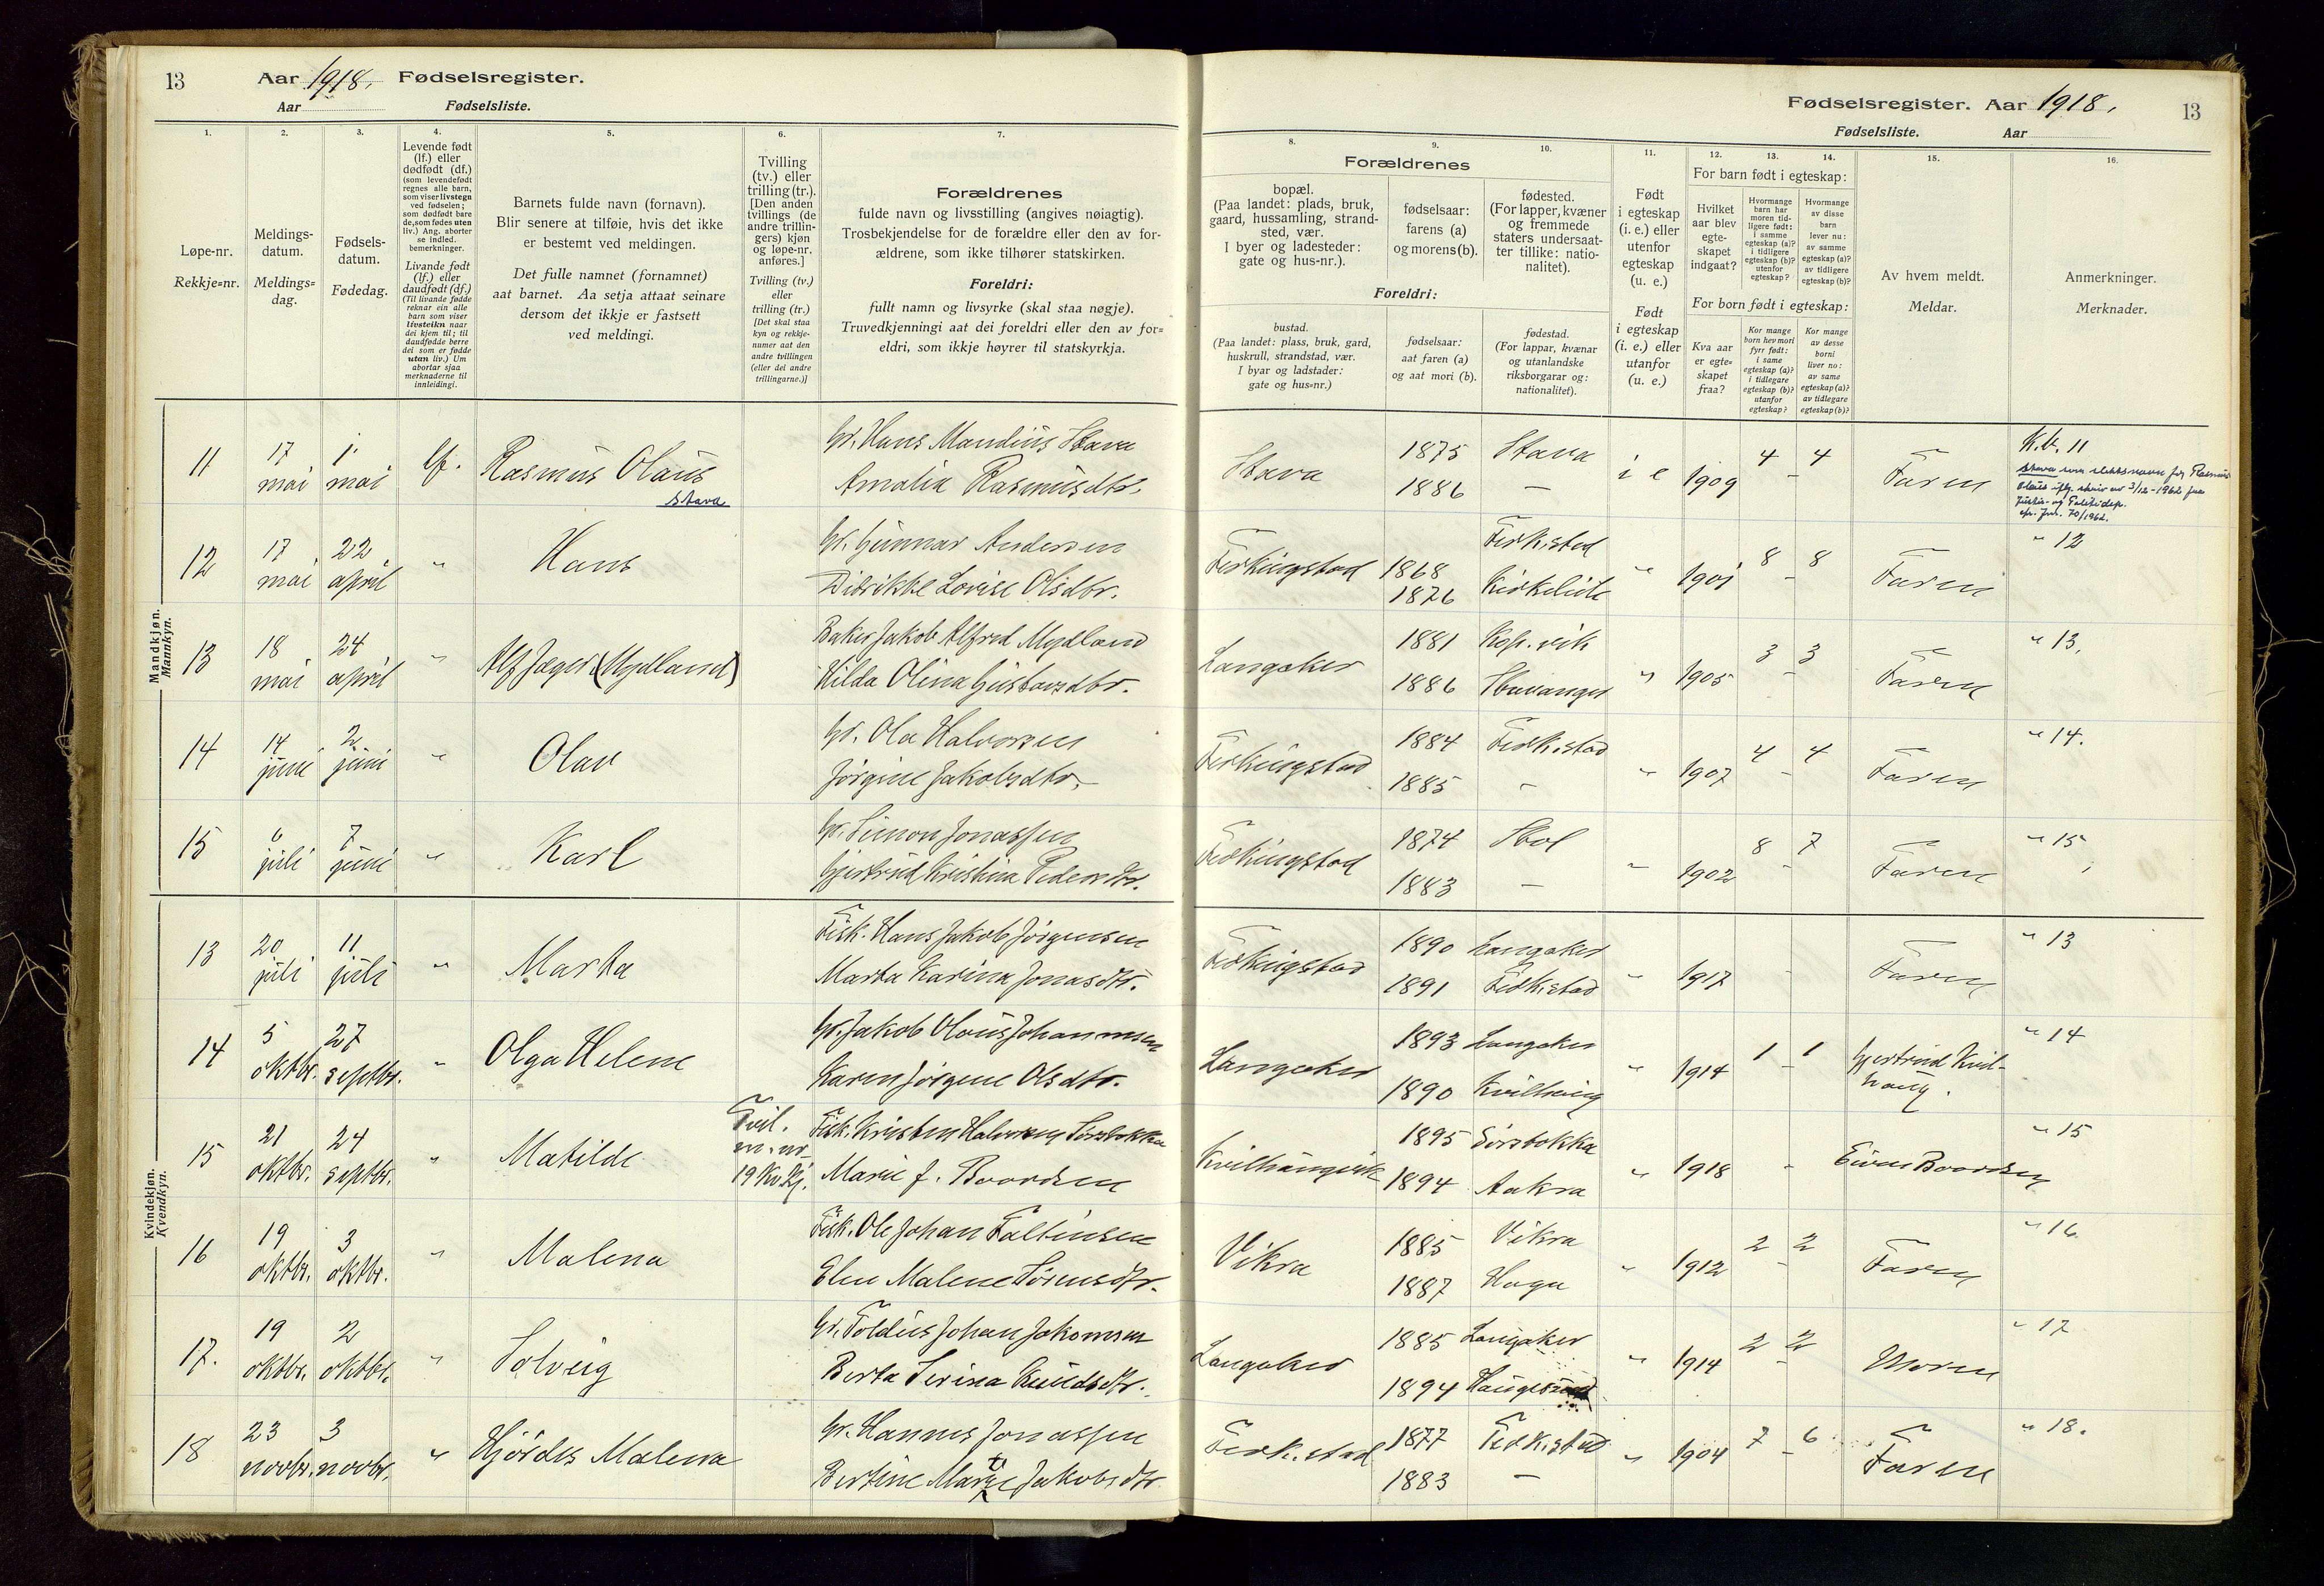 13 Aar 1918. Fødselsregister.
Aar Fødselsliste.
1. 2. 3. 4. 5. 6. 7.
Løpe-nr.
Rekkje=nr.
Meldings-
datum.
Meldings=
dag.
Fødsels-
datum.
Fødedag.
Levende født
(lf.) eller
dødfødt (df.)
(som levendefødt
regnes alle barn,
som viser livstegn
ved fødselen;
som dødfødt bare
de, som fødes uten
liv.) Ang. aborter
se indled.
bemerkninger.
Livande født
(lf.) eller
daudfødt (df.)
(Til livande fødde
reknar ein alle
barn som viser
livsteikn naar
dei kjem til; til
daudfødde berre
dei som er fødde
utan liv.) Um
abortar sjaa
merknaderne til
innleidingi.
Barnets fulde navn (fornavn).
Blir senere at tilføie, hvis det ikke
er bestemt ved meldingen.
Det fulle namnet (fornamnet)
aat barnet. Aa setja attaat seinare
dersom det ikkje er fastsett
ved meldingi.
Tvilling
(tv.) eller
trilling (tr.).
[Den anden
tvillings (de
andre trillin-
gers) kjøn
og løpe-nr.
anføres.]
Tvilling (tv.)
eller
trilling (tr.)
[Det skal staa
kyn og rekkje-
numer aat den
andre tvillingen
(eller dei andre
trillingarne.)]
Forældrenes
fulde navn og livsstilling (angives nøiagtig).
Trosbekjendelse for de forældre eller den av for-
ældrene, som ikke tilhører statskirken.
Foreldri:
fullt namn og livsyrke (skal staa nøgje).
Truvedkjenningi aat dei foreldri eller den av for=
eldri, som ikkje høyrer til statskyrkja.
Fødselsregister. Aar 1918. 13
Fødselsliste. Aar
8. 9. 10. 11. 12. 13. 14. 15. 16.
Forældrenes
bopæl.
(Paa landet: plads, bruk,
gaard, hussamling, strand-
sted, vær.
I byer og ladesteder:
gate og hus-nr.).
fødselsaar:
farens (a)
og morens (b).
fødested.
(For lapper, kvæner
og fremmede
staters undersaat-
ter tillike: natio-
nalitet).
Foreldri:
bustad.
(Paa landet: plass, bruk, gard,
huskrull, strandstad, vær.
I byar og ladstader:
gate og hus=nr.)
fødselsaar:
aat faren (a)
og aat mori (b).
fødestad.
(For lappar, kvænar
og utanlandske
riksborgarar og:
nationalitet).
Født
i egteskap
(i. e.) eller
utenfor
egteskap
(u. e.)
Født
i egteskap
(i. e.) eller
utanfor
(u. e.)
For barn født i egteskap:
Hvilket
aar blev
egte-
skapet
indgaat?
Hvormange
barn har
moren tid-
ligere født:
i samme
egteskap (a)?
i tidligere
egteskap (b)?
utenfor
egteskap?
Hvormange
av disse
barn
lever nu:
av samme
egteskap (a)?
av tidligere
egteskap (b)?
For born født i egteskap:
Kva aar
er egte-
skapet
fraa?
Kor mange
born hev mori
fyrr født:
i same
egteskap (a)?
i tidlegare
egteskap (b)?
utanfor
egteskap?
Kor mange
av desse
borni
liver no:
av same
egteskap (a)?
av tidlegare
egteskap (b)?
Av hvem meldt.
Meldar.
Anmerkninger.
Merknader.
Mandkjøn.
Mannkyn.
11 17 mai 1. mai lf. Rasmus Olaus Stava
Gr. Hans Mandius Stava
Amalia Rasmusdtr.
Stava 1875 Stava i e 1909 4 - 4 Faren K.b. 11
1886 —
Stava som slektsnavn for Rasmus
Olaus iflg. skriv av 3/12-1962 fra
Justis- og Politidep.
jfr. Jnr. 70/1962.
12 17 mai 22 april " Hans
Gr. Gunnar Andersen
Didrikke Lovise Olsdtr.
Ferkingstad 1868 Ferk.stad " 1901 8 - 8 Faren " 12
1876 Kirkeleite
13 18 mai 24 april " Alf Jæger (Mydland)
Baker Jakob Alfred Mydland
Hilda Olina Gustavsdtr.
Langaker 1881 Kop.vik " 1905 3 - 3 Faren " 13.
1886 Stavanger
14 14 juni 2 juni " Olav
Gr. Ola Halvorsen
Jørgine Jakobsdtr.
Ferkingstad 1884 Ferk.stad " 1907 4 - 4 Faren " 14.
1885 —
15 6 juli 7 juni " Karl
Gr. Simon Jonassen
Gjertrud Kristina Pedersdtr.
Ferkingstad 1874 Stol " 1902 8 - 7 Faren " 15
1883 —
Kvindekjøn.
Kvendkyn.
13 20 juli 11 juli " Marta
Fisk. Hans Jakob Jørgensen
Marta Karina Jonasdtr.
Ferkingstad 1890 Langaker " 1917 - Faren " 13
1891 Ferk.stad
14 5 oktbr. 27 septbr. " Olga Helene
Gr. Jakob Olaus Johannesen
Karen Jørgene Olsdtr.
Langaker 1893 Langaker " 1914 1 - 1 Gjertrud Kvil-
haug. " 14
1890 Kvilhaug
15 21 oktbr. 24 septbr. " Matilde Tvil.
m. nr.
19 Kv.Kj.
Fisk. Kristen Halvorsen Sørstokka
Marie J. Baardsen
Kvilhaugvik 1895 Sørstokka " 1918 - Baardsen " 15
1894 Aakra
16 19 oktbr. 3 oktbr. " Malena
Fisk. Ole Johan Faltinsen
Elen Malene Sørensdtr.
Vikra 1885 Vikra " 1912 2 - 2 Faren " 16
1887 Haga
17. 19 oktbr. 2 oktbr. " Solveig
Gr. Toldius Johan Jakobsen
Berta Serina Knudsdtr.
Langaker 1885 Langaker " 1914 2 - 2 Moren " 17
1894 Haugesund
18 23 novbr. 3 novbr. " Hjørdis Malena
Gr. Hannes Jonassen
Bertine Marie Jakobsdtr
Ferk.stad 1877 Ferk.stad " 1904 7 - 6 Faren " 18.
1883 —